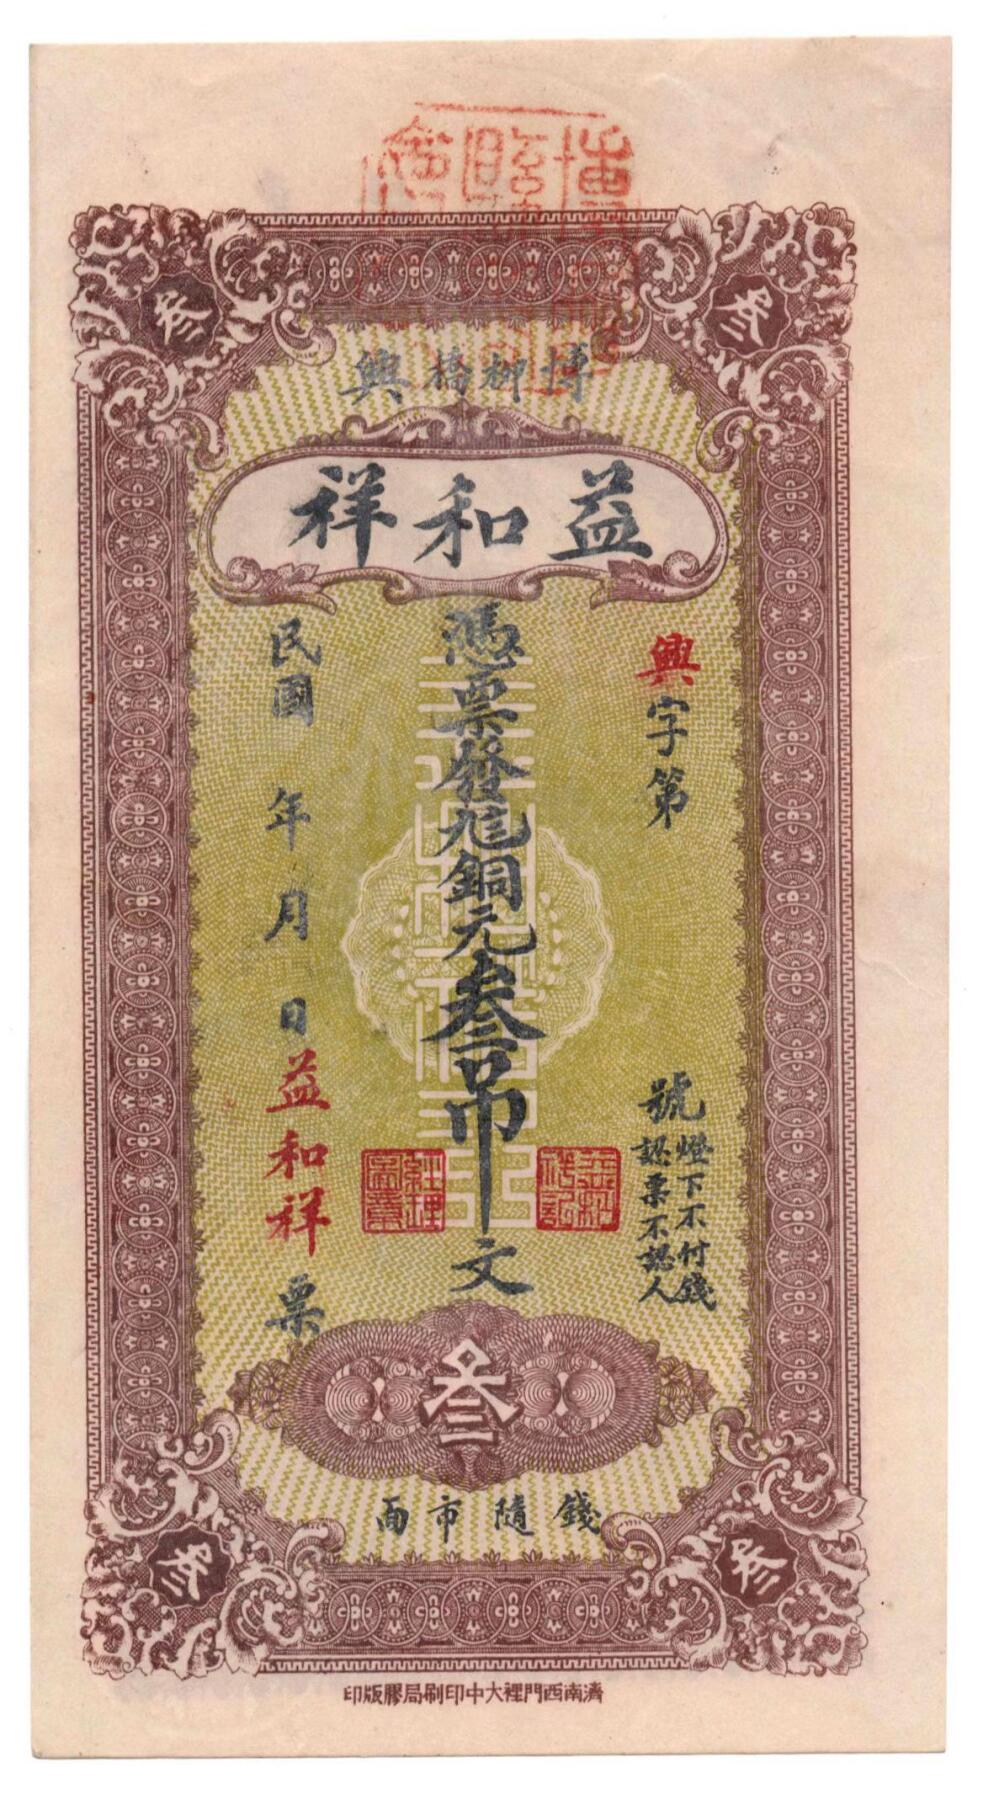 叁 叁
博柳橋興
益和祥
興字第 號
燈下不付錢
認票不認人
憑票發 銅元叁吊文
民國 年 月 日益和祥票
叁
錢隨市面
叁 叁
濟南西門裡大中印刷局膠版印